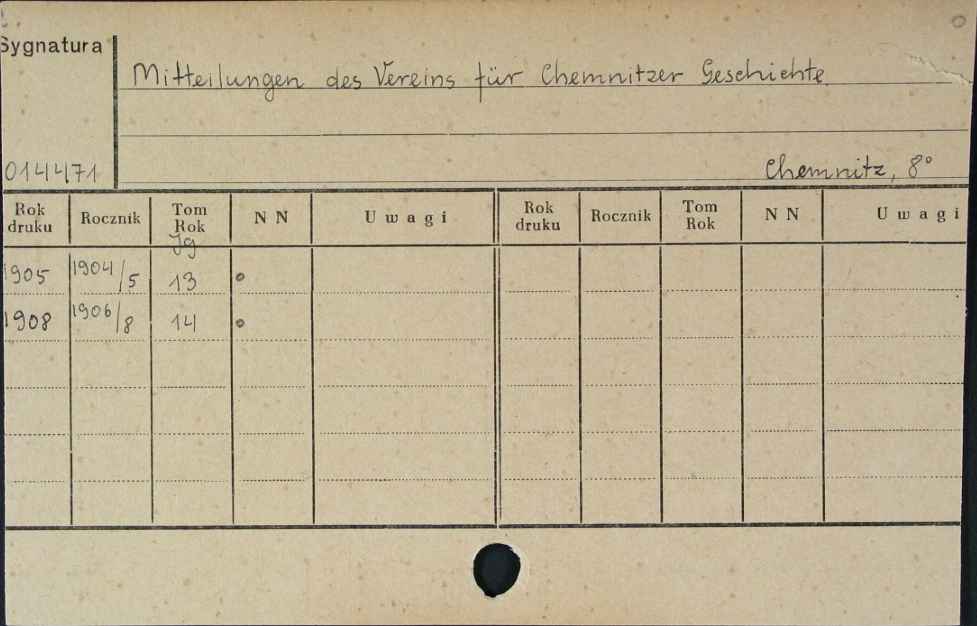 Sygnatura
Mitteilungen des Vereins für Chemnitzer Geschichte.
014471
Chemnitz, 8°
Rok druku Rocznik Tom Rok NN Uwagi Rok druku Rocznik Tom Rok NN Uwagi
Jg
1905 1904/5 13 o
1908 1906/8 14 o